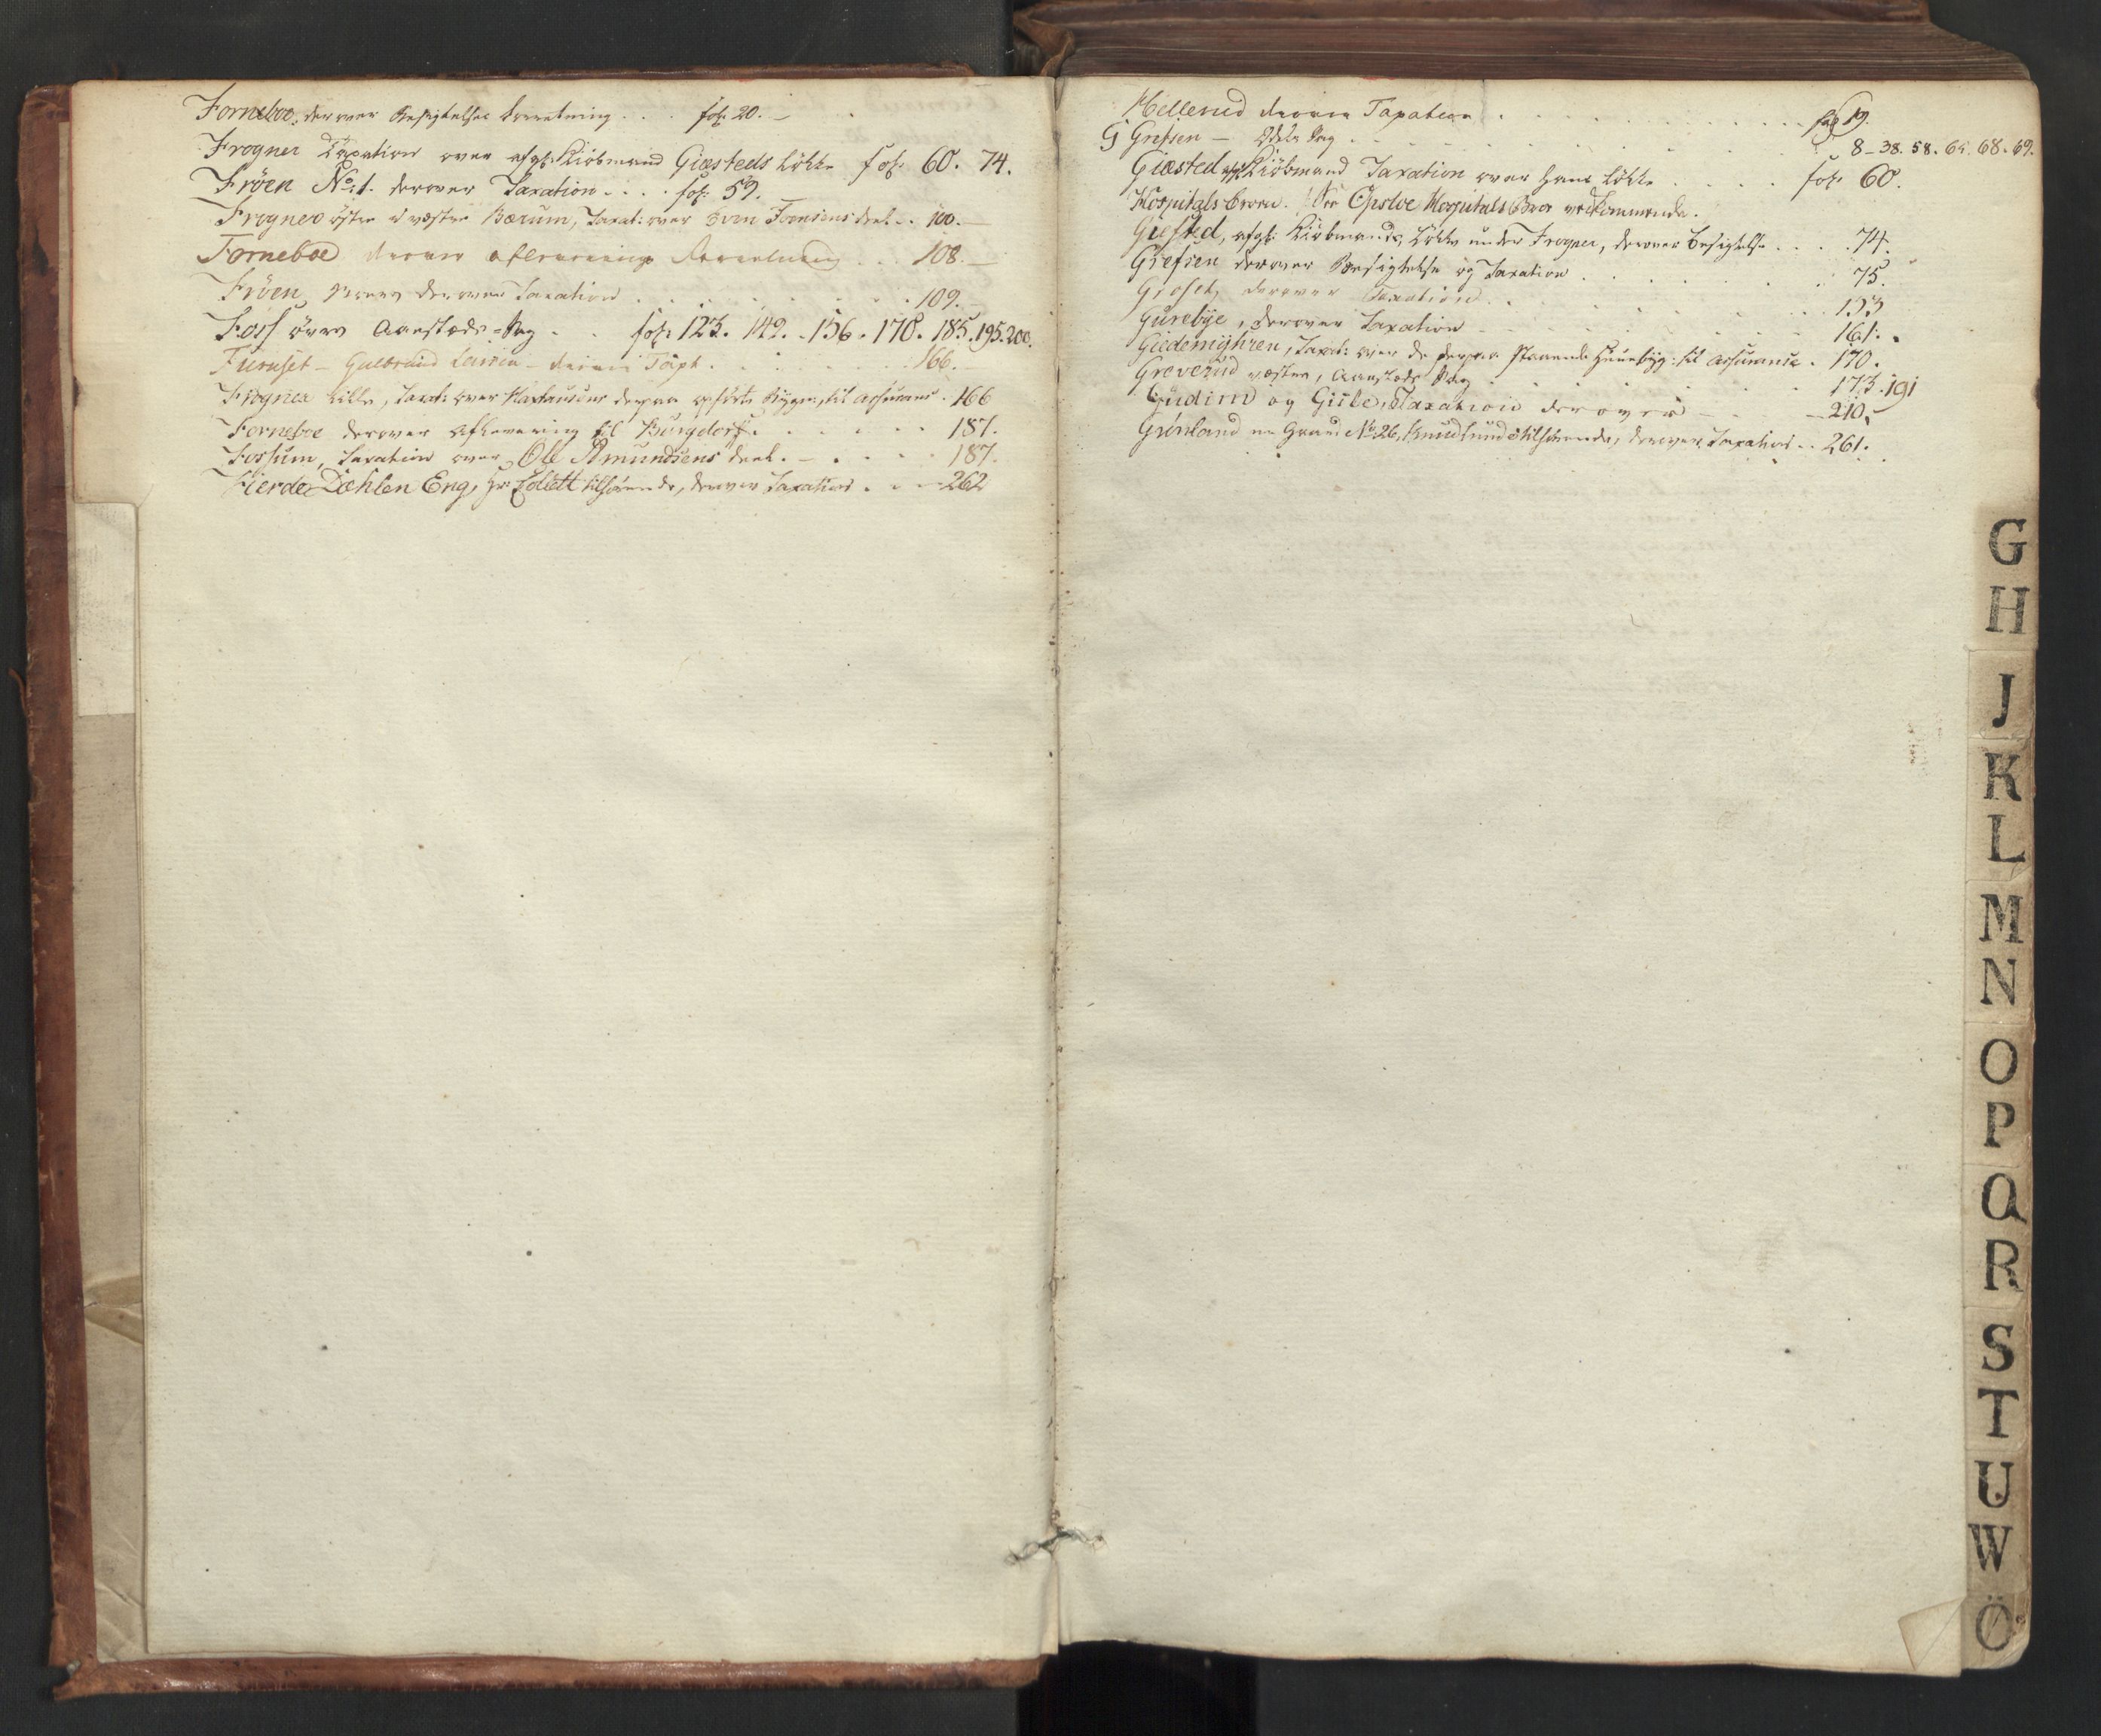 Forneboe, derover Besigtelses Forretning . . . fol: 20. –
Frogner Taxation over afg: Kiöbmand Giæsteds Lökke fol: 60. 74.
Fröen No: 1. derover Taxation . . . . fol: 59.
Frogner östre i væstre Bærum, Taxat: over Foensens deel . . 100. –
Forneboe derover Afleverings Forretning . . . 108. –
Fröen, derover Taxation . . . . . . . 109. –
Foss övre Aanstæds-Sag . . fol: 123. 142. 156. 178. 185. 195. 200.
Furuset – Gulbrand Larsen – derover Taxt. . . . . . 166. –
Frogner lille, Taxat: over derpaa opförte Bygn, til Assurance . 166
Forneboe derover Aflevering til Burgdorff. . . . . . . 187.
Fossum, Taxation over Ole Amundsens deel. – . . . . . 187.
Fierde Dæhlen Eng, Hr: Collett tilhörende, derover Taxation . . – 262
Hellerud derover Taxation . . . . . . . . . . fol 19.
G Grefsen – Odels Sag . . . . . . . . . . 8 – 38. 58. 64. 68. 69.
Giæsted afg: Kiöbmand Taxation over Hans Lökke . . . . . fol: 60.
Hospitals broen. See Opsloe Hospitals Broe vedkommende.
Giested, afg: Kiöbmands Lökke under Frogner, derover besigtelse . . . 74.
Grefsen derover Besigtelse og Taxation . . . . . . . 75.
derover Taxation . . . . . . . . . 133
Gurebye, derover Taxation – . . . . . . . . 161. .
Giedemyhren, Taxat: over de derpaa staaende Huusebyg: til Assurance . 170.
Greverud væstre, Aanstæds Sag . . . . . . . 173. 191
Gudim og Gisle, Taxation derover – . . – 210.
Grönland en Gaard No: 26, tilhörende, derover Taxation . . 261.
G
H
J
K
L
M
N
O
P
Q
R
S
T
U
W
Ö